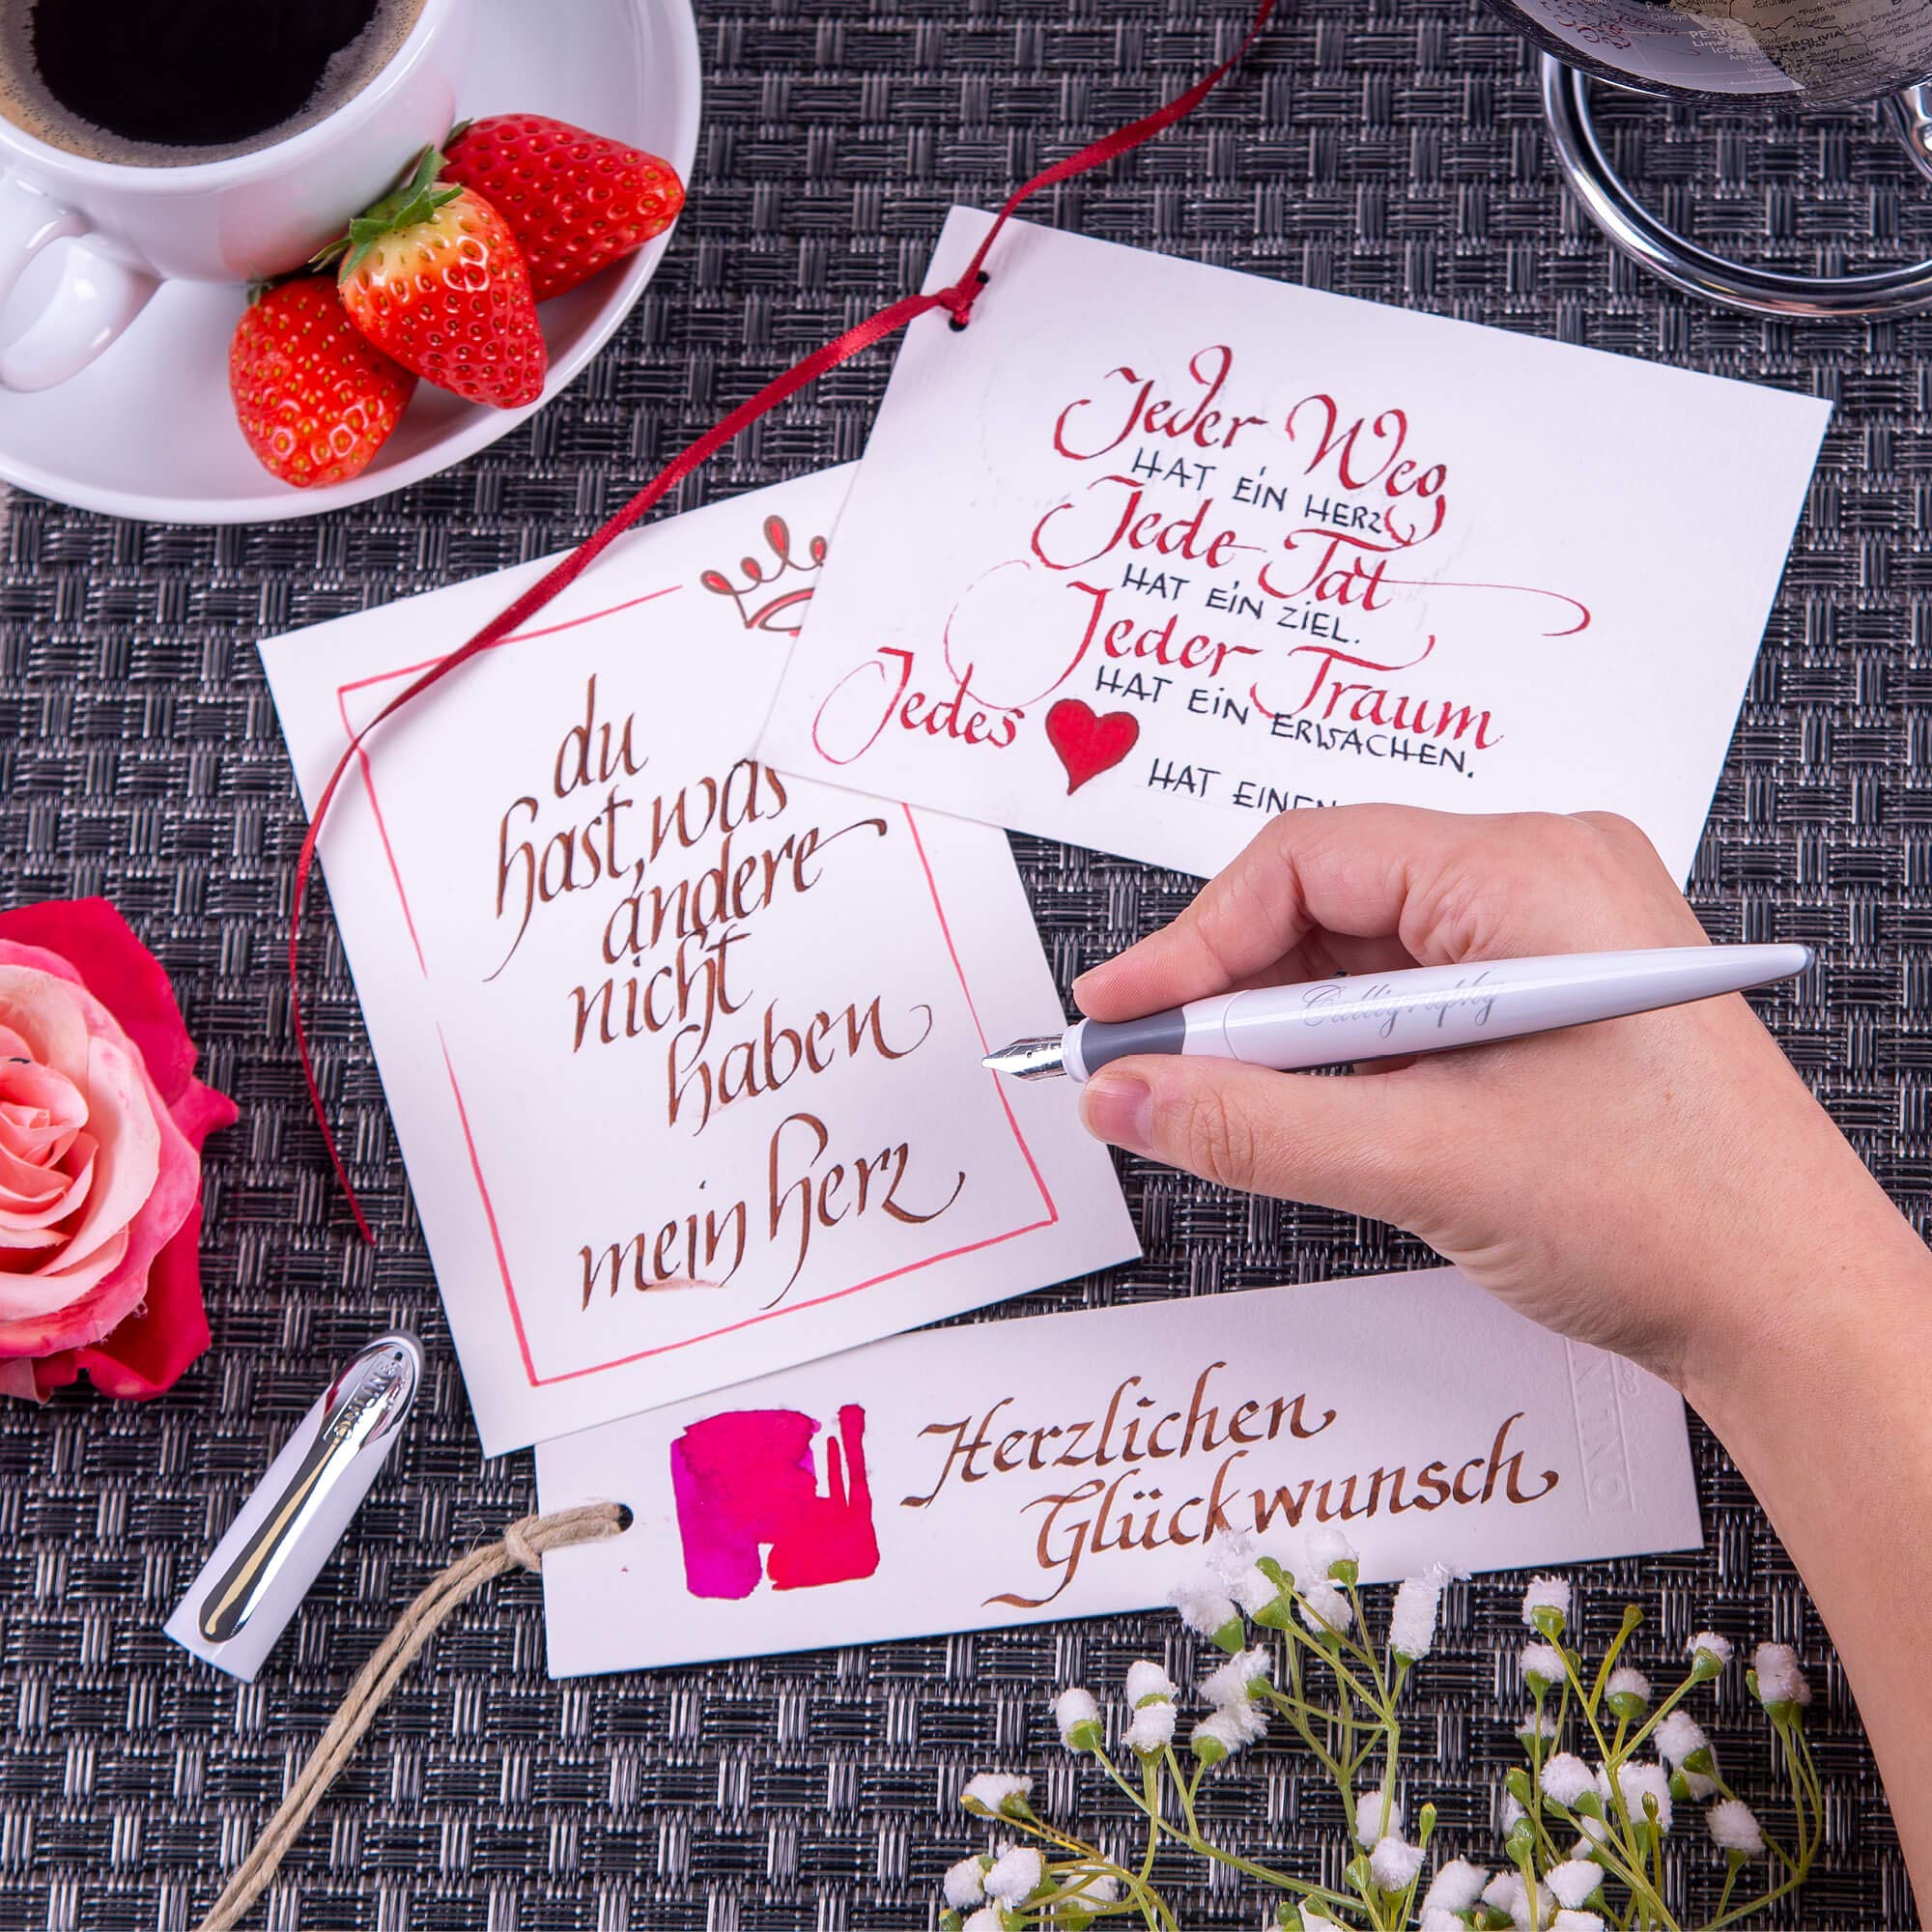 Jeder Weg
HAT EIN HERZ
Jede Tat
HAT EIN ZIEL.
Jeder Traum
HAT EIN ERWACHEN.
Jedes
HAT EINEN
du
hast, was
andere
nicht
haben
mein herz
Calligraphy
Herzlichen
Glückwunsch
ONLINE
PERU
BOLIVIA